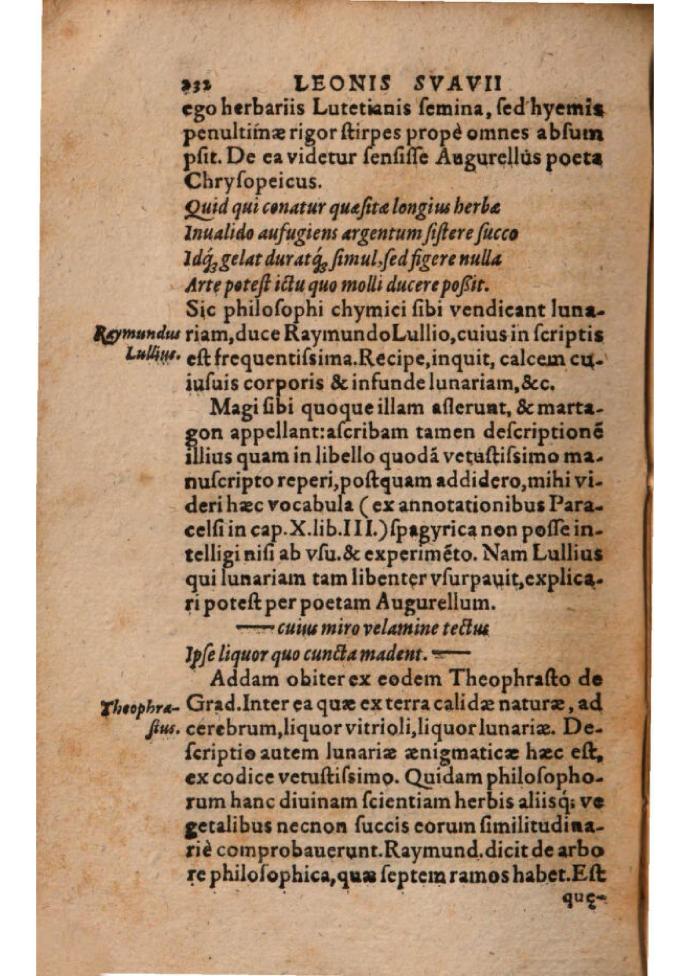 232 LEONIS SVAVII
ego herbariis Lutetianis semina, sed hyemis
penultimæ rigor stirpes propè omnes absum
psit. De ea videtur sensisse Augurellus poeta
Chrysopeicus.
Quid qui conatur quæsitæ longius herbæ
Inualido aufugiens argentum sistere succo
Idq́; gelat duratq́; simul, sed figere nulla
Arte potest ictu quo molli ducere poßit.
Sic philosophi chymici sibi vendicant luna-
Raymundus riam, duce Raymundo Lullio, cuius in scriptis
Lullius. est frequentissima. Recipe, inquit, calcem cu-
iusuis corporis & infunde lunariam, &c.
Magi sibi quoque illam asserunt, & marta-
gon appellant: ascribam tamen descriptionē
illius quam in libello quodā vetustissimo ma-
nuscripto reperi, postquam addidero, mihi vi-
deri hæc vocabula ( ex annotationibus Para-
celsi in cap. X. lib. III.) spagyrica non posse in-
telligi nisi ab vsu. & experimēto. Nam Lullius
qui lunariam tam libenter vsurpauit, explica-
ri potest per poetam Augurellum.
— cuius miro velamine tectus
Ipse liquor quo cuncta madent. —
Addam obiter ex eodem Theophrasto de
Theophra- Grad. Inter ea quæ ex terra calidæ naturæ, ad
stus. cerebrum, liquor vitrioli, liquor lunariæ. De-
scriptio autem lunariæ ænigmaticæ hæc est,
ex codice vetustissimo. Quidam philosopho-
rum hanc diuinam scientiam herbis aliisq́; ve
getalibus necnon succis eorum similitudina-
riè comprobauerunt. Raymund. dicit de arbo
re philosophica, quæ septem ramos habet. Est
quę-